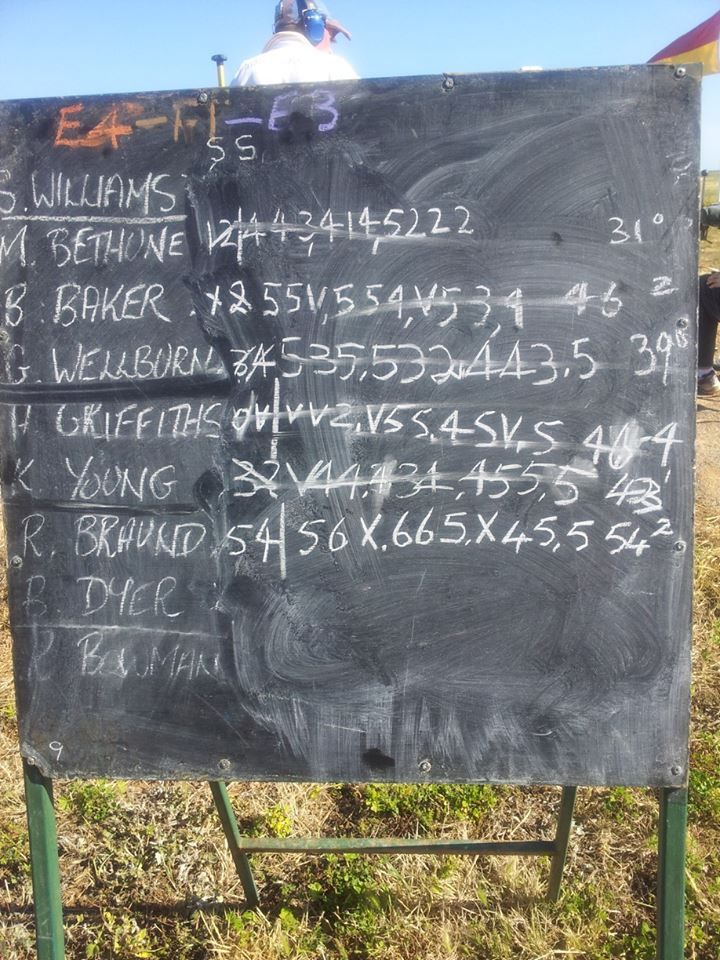 E4-F1-E3
SS
S. WILLIAMS
M. BETHUNE 12|443,414,5222 31⁰
B. BAKER X2 55V,554,V53,4 46²
G. WELLBURN 34 535,532,443,5 39⁰
H GRIFFITHS 0V|VV2,V55,45V,5 46.4
K YOUNG 32 V44,434,455,5 42
R. BRAUND 54|56X,665,X45,5 54²
B. DYER
P BOWMAN
9